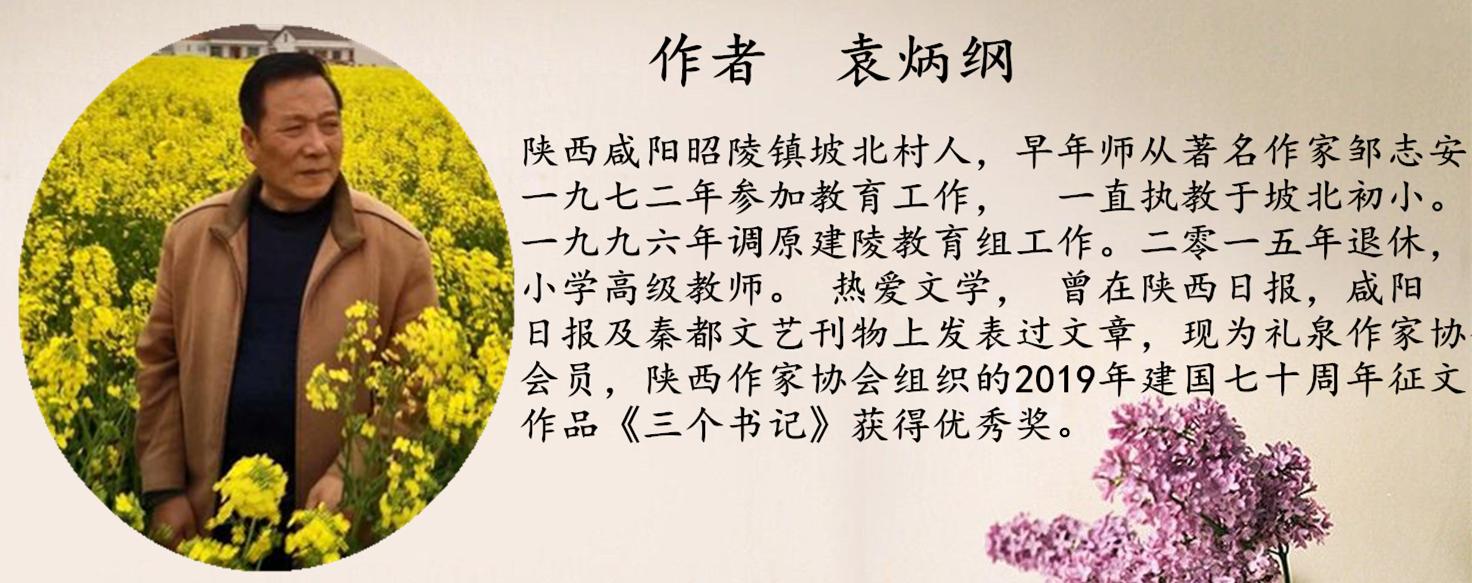 作者　袁炳纲
陕西咸阳昭陵镇坡北村人，早年师从著名作家邹志安
一九七二年参加教育工作，　一直执教于坡北初小。
一九九六年调原建陵教育组工作。二零一五年退休，
小学高级教师。 热爱文学， 曾在陕西日报，咸阳
日报及秦都文艺刊物上发表过文章，现为礼泉作家协
会员，陕西作家协会组织的2019年建国七十周年征文
作品《三个书记》获得优秀奖。